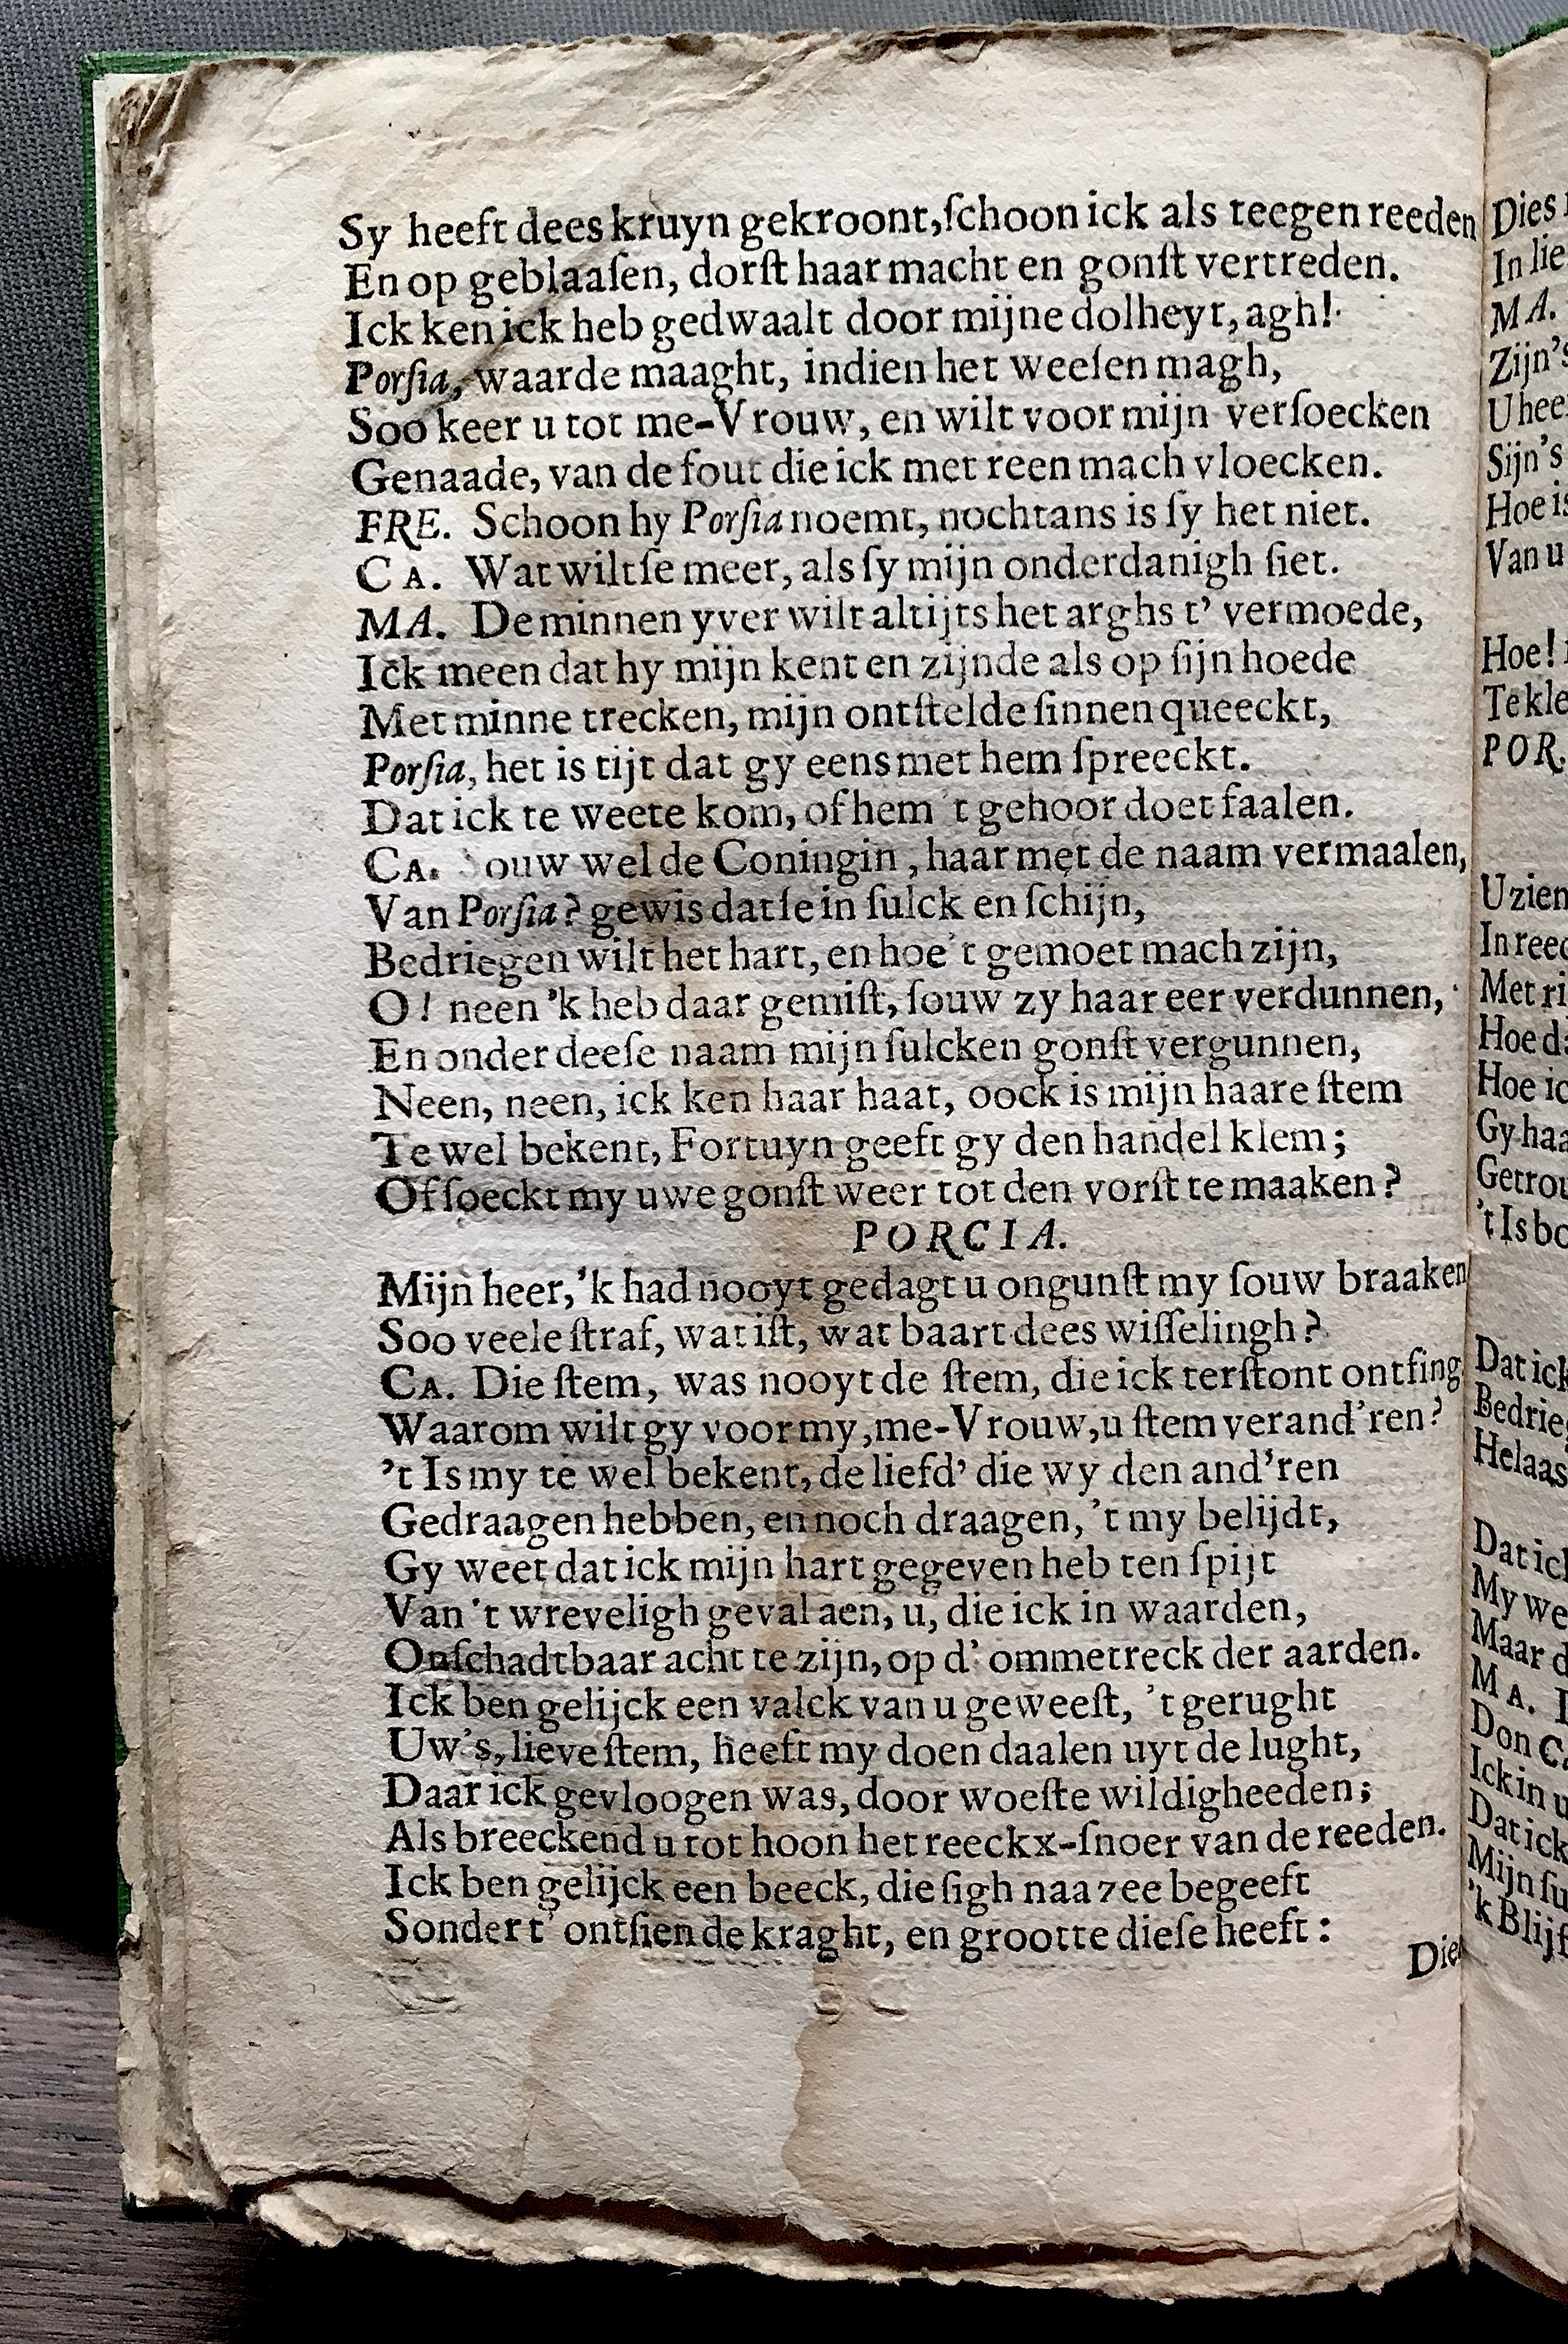 Sy heeft dees kruyn gekroont, ſchoon ick als teegen reeden
En op geblaaſen, dorſt haar macht en gonſt vertreden.
Ick ken ick heb gedwaalt door mijne dolheyt, agh!
Porſia, waarde maaght, indien het weeſen magh,
Soo keer u tot me-Vrouw, en wilt voor mijn verſoecken
Genaade, van de fout die ick met reen mach vloecken.
FRE. Schoon hy Porſia noemt, nochtans is ſy het niet.
CA. Wat wiltſe meer, als ſy mijn onderdanigh ſiet.
MA. De minnen yver wilt altijts het arghs t' vermoede,
Ick meen dat hy mijn kent en zijnde als op ſijn hoede
Met minne trecken, mijn ontſtelde ſinnen queeckt,
Porſia, het is tijt dat gy eens met hem ſpreeckt.
Dat ick te weete kom, of hem 't gehoor doet faalen.
CA. Souw wel de Coningin, haar met de naam vermaalen,
Van Porſia? gewis datſe in ſulck en ſchijn,
Bedriegen wilt het hart, en hoe 't gemoet mach zijn,
O! neen 'k heb daar gemiſt, ſouw zy haar eer verdunnen,
En onder deeſe naam mijn ſulcken gonſt vergunnen,
Neen, neen, ick ken haar haat, oock is mijn haare ſtem
Te wel bekent, Fortuyn geeft gy den handel klem;
Of ſoeckt my uwe gonſt weer tot den vorſt te maaken?
PORCIA.
Mijn heer, 'k had nooyt gedagt u ongunſt my ſouw braaken
Soo veele ſtraf, wat iſt, wat baart dees wiſſelingh?
CA. Die ſtem, was nooyt de ſtem, die ick terſtont ontfing
Waarom wilt gy voor my, me-Vrouw, u ſtem verand'ren?
't Is my te wel bekent, de liefd' die wy den and'ren
Gedraagen hebben, en noch draagen, 't my belijdt,
Gy weet dat ick mijn hart gegeven heb ten ſpijt
Van 't wreveligh geval aen, u, die ick in waarden,
Onſchadtbaar acht te zijn, op d' ommetreck der aarden.
Ick ben gelijck een valck van u geweeſt, 't gerught
Uw's, lieve ſtem, heeft my doen daalen uyt de lught,
Daar ick gevloogen was, door woeſte wildigheeden;
Als breeckend u tot hoon het reeckx-ſnoer van de reeden.
Ick ben gelijck een beeck, die ſigh naa zee begeeft
Sonder t' ontſien de kraght, en grootte dieſe heeft:
Dies
In lie
MA.
Zijn's
U hee
Sijn's
Hoe is
Van u
Hoe!
Te kle
POR.
U zien
In reed
Met ri
Hoe da
Hoe ic
Gy haa
Getrou
't Is bo
Dat ick
Bedrieg
Helaas
Dat ick
My we
Maar d
MA.
Don C
Ick in u
Dat ick
Mijn ſu
'k Blijf